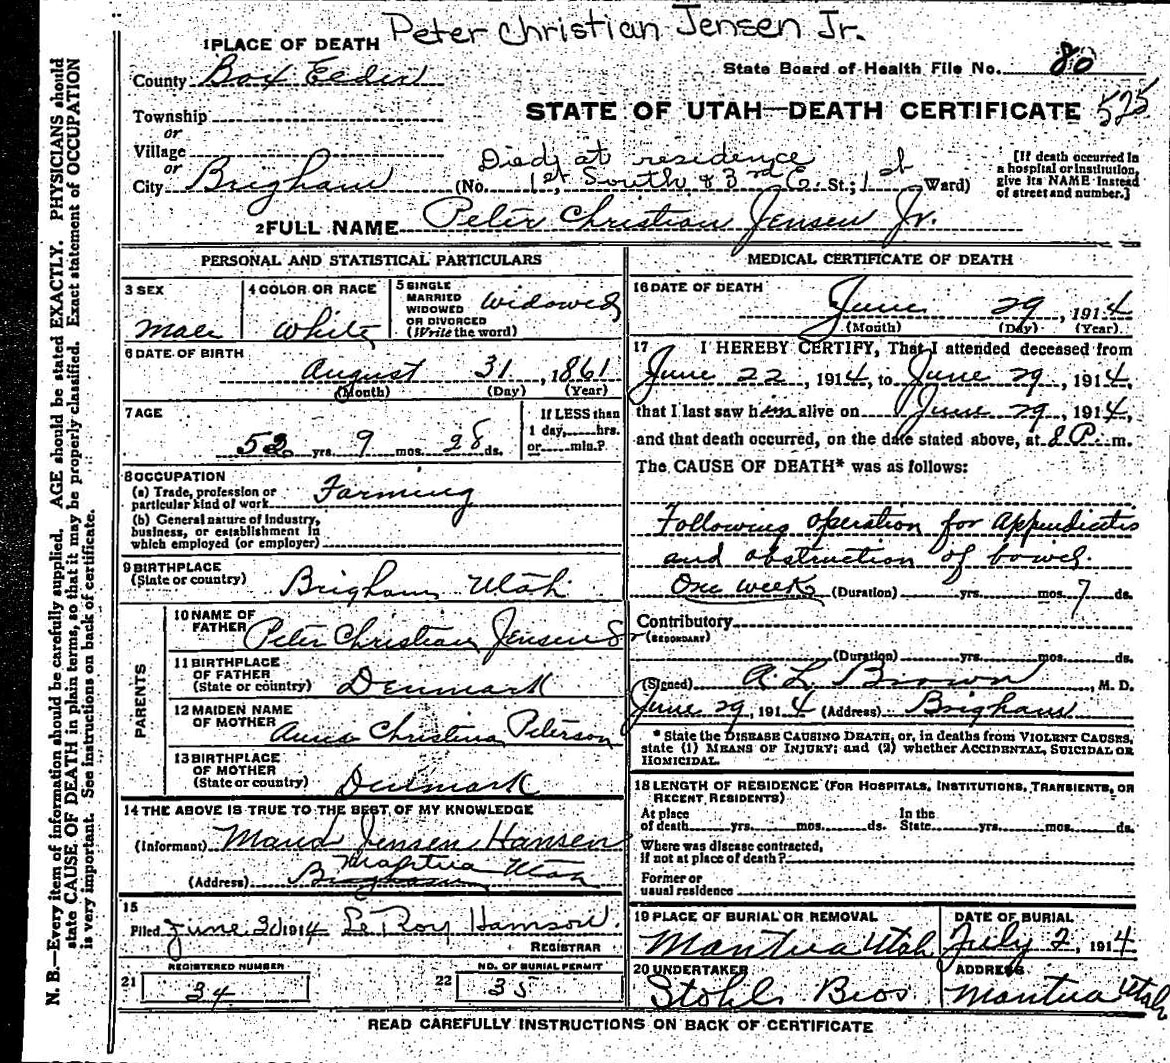 Peter Christian Jensen Jr.
1 PLACE OF DEATH
County Box Elder
State Board of Health File No. 80
STATE OF UTAH—DEATH CERTIFICATE 525
Township
or
Village
or
City Brigham
Died at residence
(No. 1st South & 3rd E. St.; 1st Ward)
[If death occurred in
a hospital or institution,
give its NAME instead
of street and number.]
2 FULL NAME Peter Christian Jensen Jr.
PERSONAL AND STATISTICAL PARTICULARS
3 SEX
Male
4 COLOR OR RACE
White
5 SINGLE
MARRIED
WIDOWED
OR DIVORCED
(Write the word)
Widowed
6 DATE OF BIRTH
August 31, 1861
(Month) (Day) (Year)
7 AGE
52 yrs. 9 mos. 28 ds.
If LESS than
1 day,......hrs.
or......min.?
8 OCCUPATION
(a) Trade, profession or
particular kind of work Farming
(b) General nature of industry,
business, or establishment in
which employed (or employer)
9 BIRTHPLACE
(State or country) Brigham Utah
PARENTS
10 NAME OF
FATHER Peter Christian Jensen Sr
11 BIRTHPLACE
OF FATHER
(State or country) Denmark
12 MAIDEN NAME
OF MOTHER Anna Christina Peterson
13 BIRTHPLACE
OF MOTHER
(State or country) Denmark
14 THE ABOVE IS TRUE TO THE BEST OF MY KNOWLEDGE
(Informant) Maud Jensen Hansen
Mantua
(Address) Brigham Utah
15
Filed June 30 1914 Le Roy Hamson
REGISTRAR
REGISTERED NUMBER
21 34
NO. OF BURIAL PERMIT
22 35
MEDICAL CERTIFICATE OF DEATH
16 DATE OF DEATH
June 29, 1914
(Month) (Day) (Year)
17 I HEREBY CERTIFY, That I attended deceased from
June 22, 1914, to June 29, 1914,
that I last saw him alive on June 29, 1914,
and that death occurred, on the date stated above, at 8 P. m.
The CAUSE OF DEATH* was as follows:
Following operation for Appendicitis
and obstruction of bowel.
One week (Duration) yrs. mos. 7 ds.
Contributory
(SECONDARY)
(Duration) yrs. mos. ds.
(Signed) A. L. Brown, M. D.
June 29, 1914 (Address) Brigham
* State the DISEASE CAUSING DEATH; or, in deaths from VIOLENT CAUSES,
state (1) MEANS OF INJURY; and (2) whether ACCIDENTAL, SUICIDAL OR
HOMICIDAL.
18 LENGTH OF RESIDENCE (FOR HOSPITALS, INSTITUTIONS, TRANSIENTS, OR
RECENT RESIDENTS)
At place In the
of death yrs. mos. ds. State yrs. mos. ds.
Where was disease contracted,
if not at place of death?
Former or
usual residence
19 PLACE OF BURIAL OR REMOVAL
Mantua Utah
DATE OF BURIAL
July 2, 1914
20 UNDERTAKER
Stohl Bros
ADDRESS
Mantua Utah
READ CAREFULLY INSTRUCTIONS ON BACK OF CERTIFICATE
N. B.—Every item of information should be carefully supplied. AGE should be stated EXACTLY. PHYSICIANS should
state CAUSE OF DEATH in plain terms, so that it may be properly classified. Exact statement of OCCUPATION
is very important. See instructions on back of certificate.